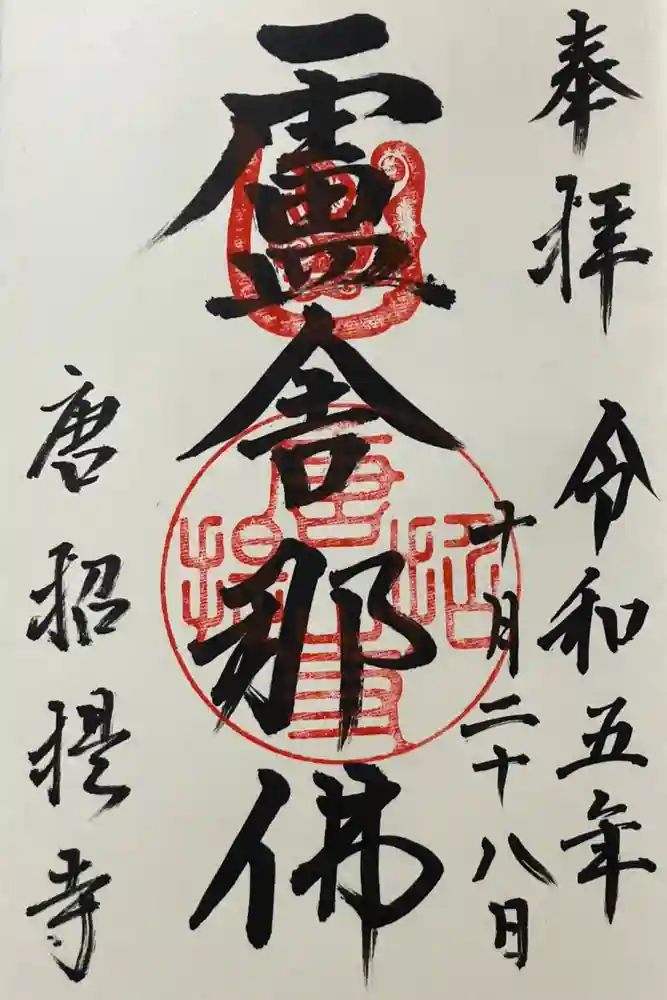 奉拝 令和五年
十月二十八日
盧舎那佛
唐招提寺